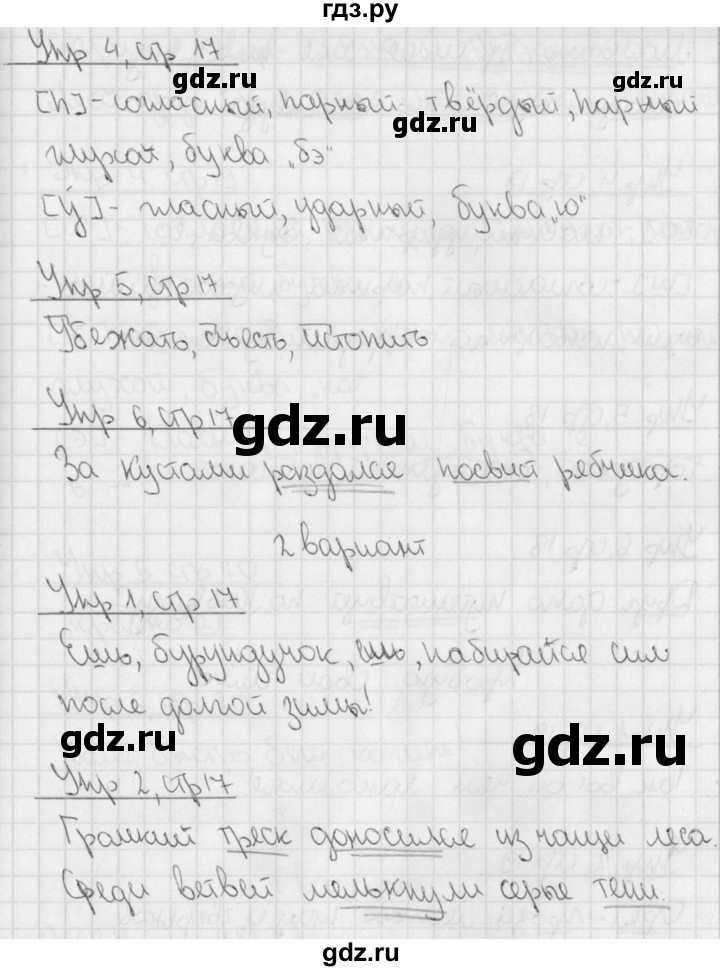 гдз.ру
Упр 4, стр 17
gdz.ru
gdz.ru
[п] - согласный, парный твёрдый, парный
gdz.ru
глухой, буква „бэ"
[у́] - гласный, ударный, буква „ю"
Упр 5, стр 17
Убежать, съесть, истопить
Упр 6, стр 17
gdz.ru
За кустами раздался посвист рябчика.
2 вариант
Упр 1, стр 17
Ешь, бурундучок, ешь, набирайся сил
после долгой зимы!
gdz.ru
gdz.ru
Упр 2, стр 17
Громкий треск доносился из чащи леса.
Среди ветвей мелькнули серые тени.
gdz.ru